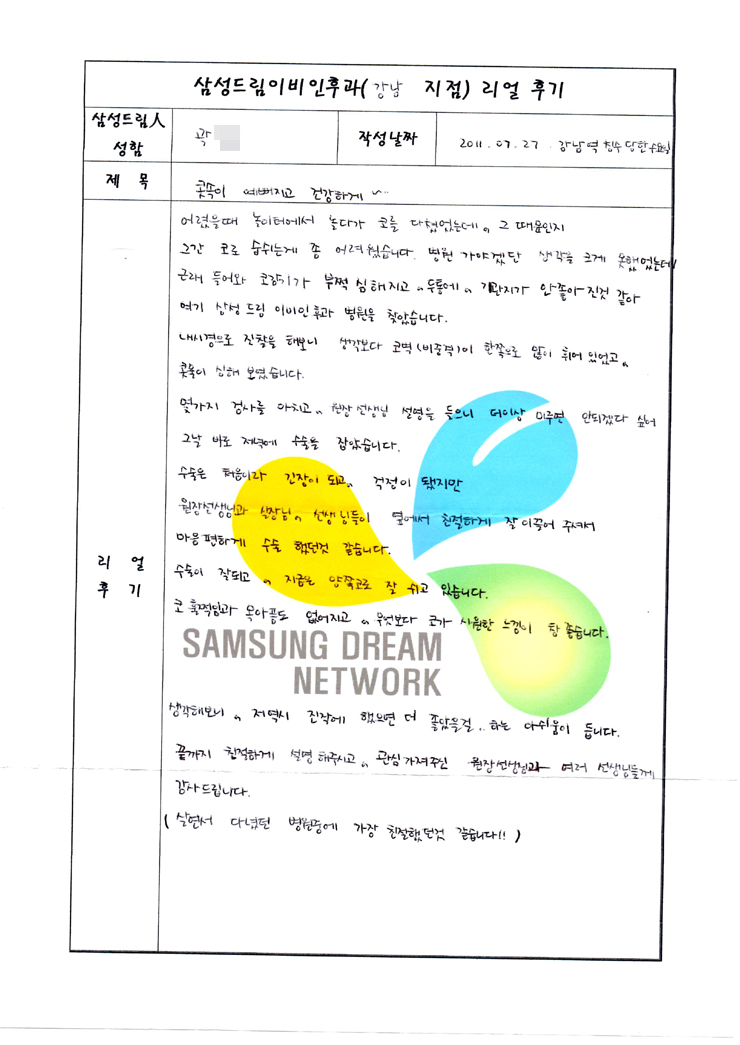 삼성드림이비인후과( 강남 지점) 리얼 후기
삼성드림人 성함
곽
작성날짜
2011. 07. 27 강남역 침수 당한 수요일
제 목
콧속이 예뻐지고 건강하게 ~
리 얼 후 기
어렸을때 놀이터에서 놀다가 코를 다쳤었는데.. 그 때문인지
그간 코로 숨쉬는게 좀 어려웠습니다. 병원 가야겠단 생각을 크게 못했었는데
근래 들어와 코감기가 부쩍 심해지고.. 두통에.. 기관지가 안좋아진것 같아
여기 삼성 드림 이비인후과 병원을 찾았습니다.
내시경으로 진찰을 해보니 생각보다 코벽(비중격)이 한쪽으로 많이 휘어 있었고..
콧속이 심해 보였습니다.
몇가지 검사를 마치고.. 원장 선생님 설명을 들으니 더이상 미루면 안되겠다 싶어
그날 바로 저녁에 수술을 잡았습니다.
수술은 처음이라 긴장이 되고.. 걱정이 됐지만
원장선생님과 실장님.. 선생님들이 옆에서 친절하게 잘 이끌어 주셔서
마음 편하게 수술 했던것 같습니다.
수술이 잘되고.. 지금은 양쪽코로 잘 쉬고 있습니다.
코 훌쩍임과 목아픔도 없어지고.. 무엇보다 코가 시원한 느낌이 참 좋습니다.
SAMSUNG DREAM
NETWORK
생각해보니.. 저역시 진작에 했으면 더 좋았을걸.. 하는 아쉬움이 듭니다.
끝까지 친절하게 설명해주시고.. 관심가져주신 원장선생님과 여러 선생님들께
감사드립니다.
( 살면서 다녔던 병원중에 가장 친절했던것 같습니다!! )